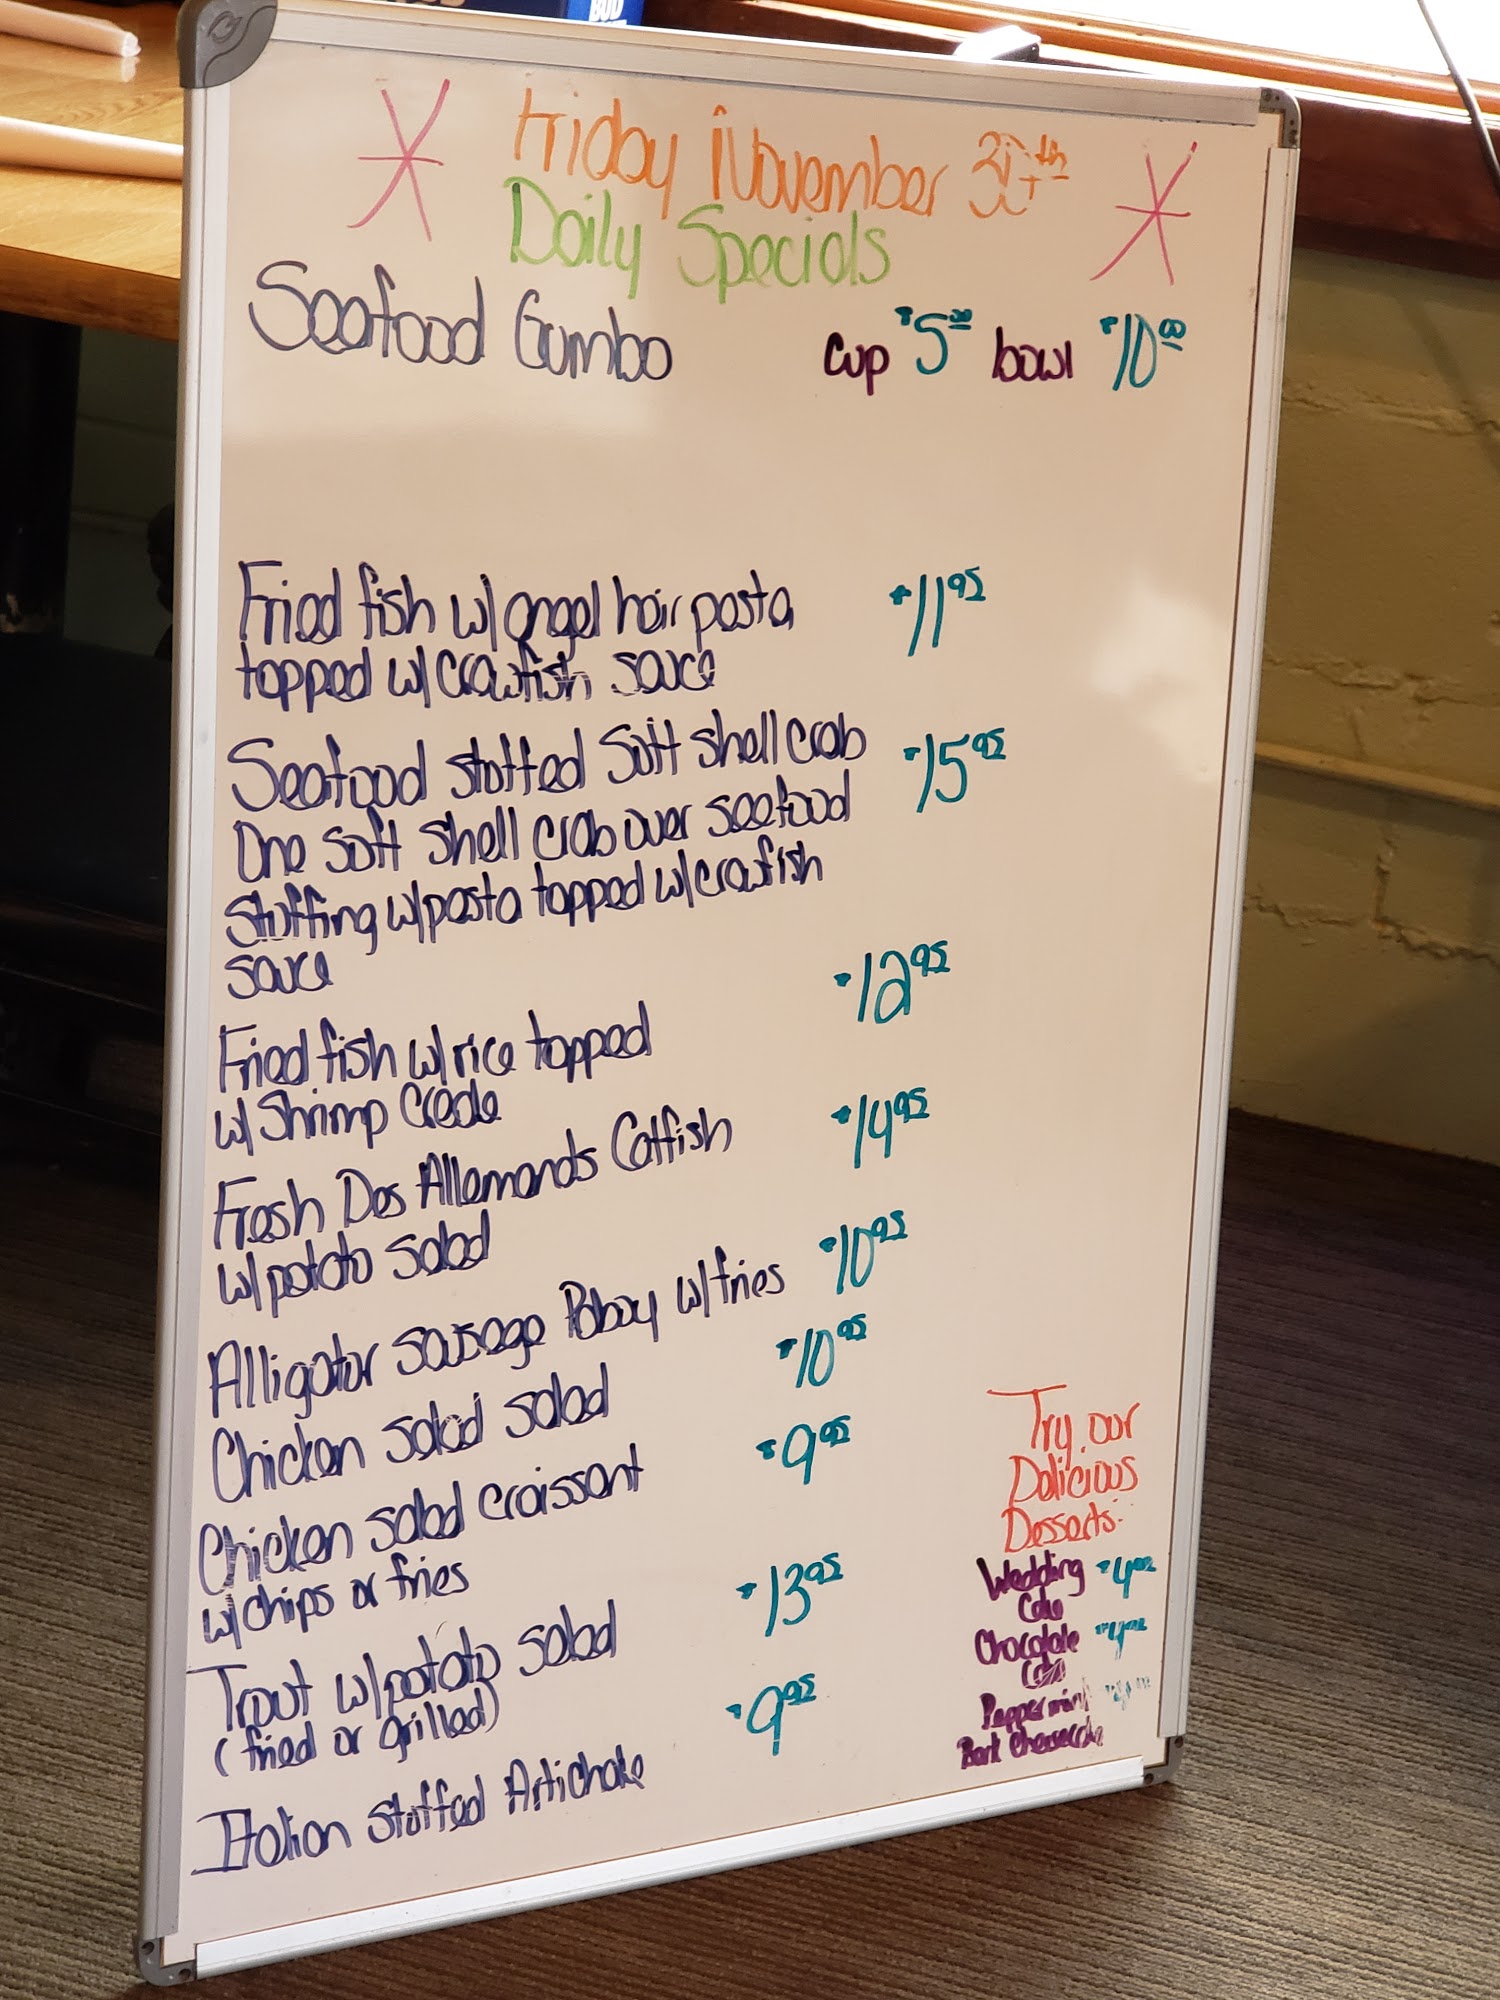 BUD
Friday November 30th
Daily Specials
Seafood Gumbo cup $5.00 bowl $10.00
Fried fish w/ angel hair pasta $11.95
topped w/ crawfish sauce
Seafood stuffed Soft shell crab $15.95
One soft shell crab over seafood
stuffing w/pasta topped w/crawfish
sauce
Fried fish w/rice topped $12.95
w/ Shrimp Creole
Fresh Des Allemands Catfish $14.95
w/potato salad
Alligator sausage Poboy w/fries $10.95
Chicken salad salad $10.95
Chicken salad croissant $9.95
w/chips or fries
Trout w/potato salad $13.95
(fried or grilled)
Italian Stuffed Artichoke $9.95
Try our
Delicious
Desserts:
Wedding $4.00
Cake
Chocolate
Cake
Peppermint
Bark Cheesecake